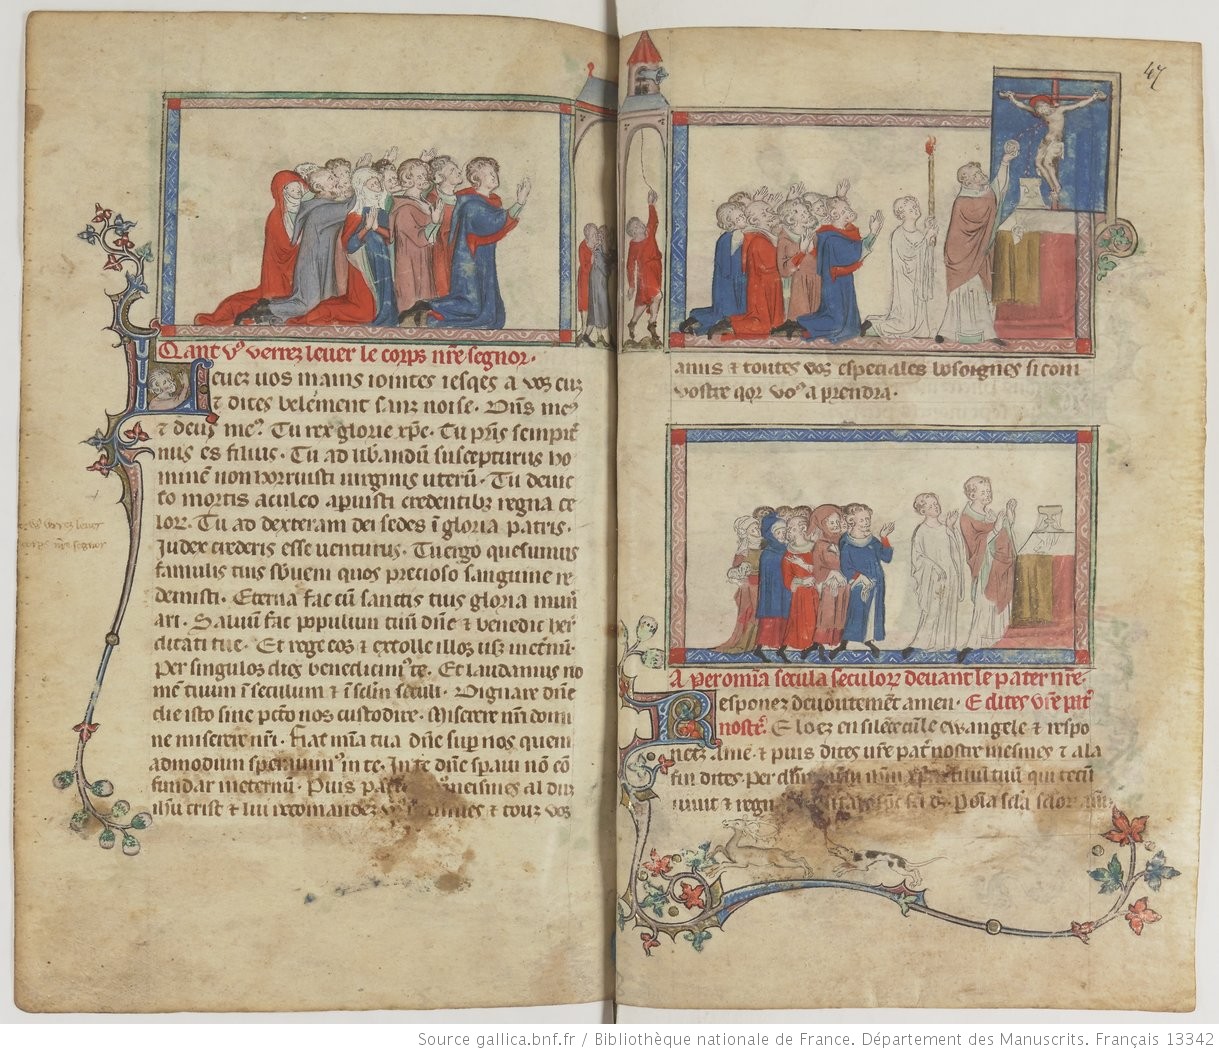 Qant vꝰ verrez lever le corps nr̃e segnor·
Levez vos mains iointes iesqes a vos euz
⁊ dites belemēt sanz noise· Dñs meꝰ
⁊ deus meꝰ· Tu rex glorie xp̃e· Tu pr̃is sempit̾
nus es filius· Tu ad lib̾andū suscepturus ho
minē non horruisti virginis uterū· Tu devic
to mortis aculeo apuisti credentibꝫ regna ce
lorꝫ· Tu ad dexteram dei sedes ī gloria patris·
Iudex crederis esse venturus· Tu ergo quesumus
famulis tuis sb̾veni quos precioso sanguine re
demisti· Eterna fac cū sanctis tuis gloria mun̄
ari· Salvum fac populum tuū dñe ⁊ benedic her̄
ditati tue· Et rege eos ⁊ extolle illos usꝫ inet̾nū·
Per singulos dies benedicimꝰ te· Et laudamus no
mē tuum ī seculum ⁊ ī sc̄lm sc̄culi· Dignare dñe
die isto sine pctō nos custodire· Miserere nr̄i domi
ne miserere nr̄i· Fiat mīa tua dñe sup̾ nos quem
admodum speravimꝰ in te· In te dñe sp̾avi nō cō
fundar ineternū· Puis meismes al
ihū crist ⁊ lui recomandez ⁊ touz vos
verrez lever
corps nr̄e segnor
47
amis ⁊ toutes voz especiales bosoignes si com
vostre qor voꝰ aprendra·
A per omīa secula seculorꝫ devant le pater nr̄e·
Responez devoutemēt amen· E dites vr̄e pat̾
nostē· E loez en silēce cūlle ewangele ⁊ respo
nez amē· ⁊ puis dites vr̄e pat̾ nostre meismes ⁊ a la
fin dites Per dn̄m qui tecū
vivit ⁊ regn
Source gallica.bnf.fr / Bibliothèque nationale de France. Département des Manuscrits. Français 13342